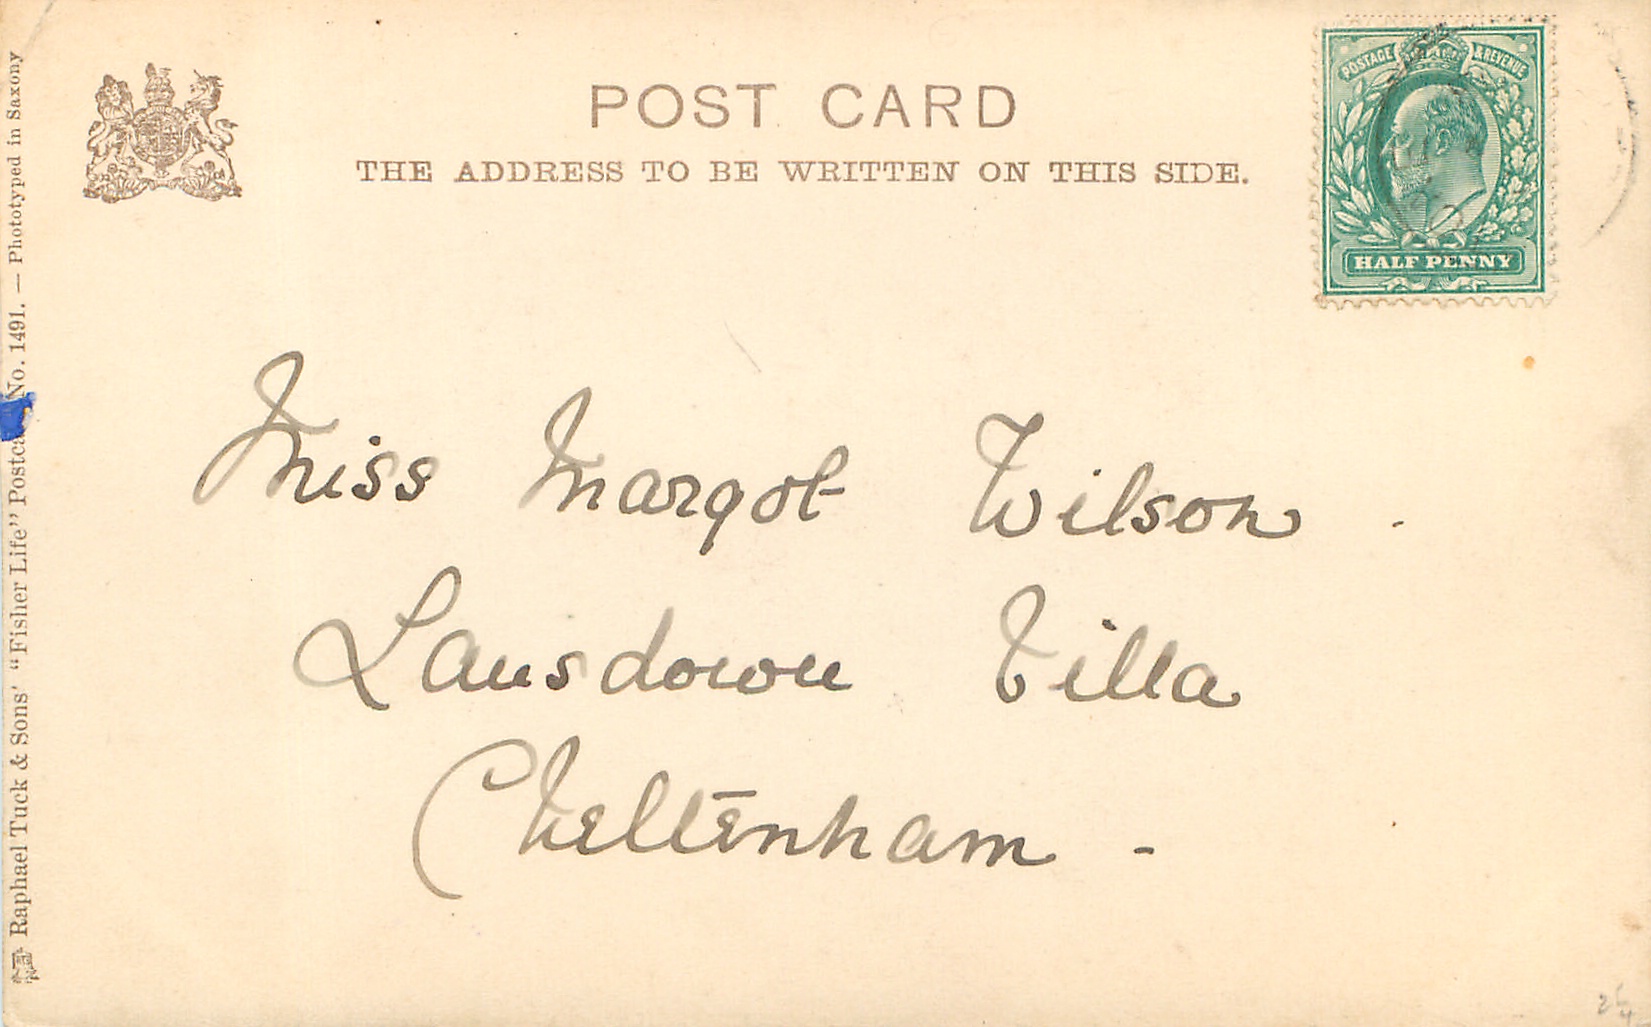 POST CARD
THE ADDRESS TO BE WRITTEN ON THIS SIDE.
POSTAGE & REVENUE
HALF PENNY
Miss Margot Wilson
Lansdown Villa
Cheltenham -
Raphael Tuck & Sons' "Fisher Life" Postca No. 1491. — Phototyped in Saxony